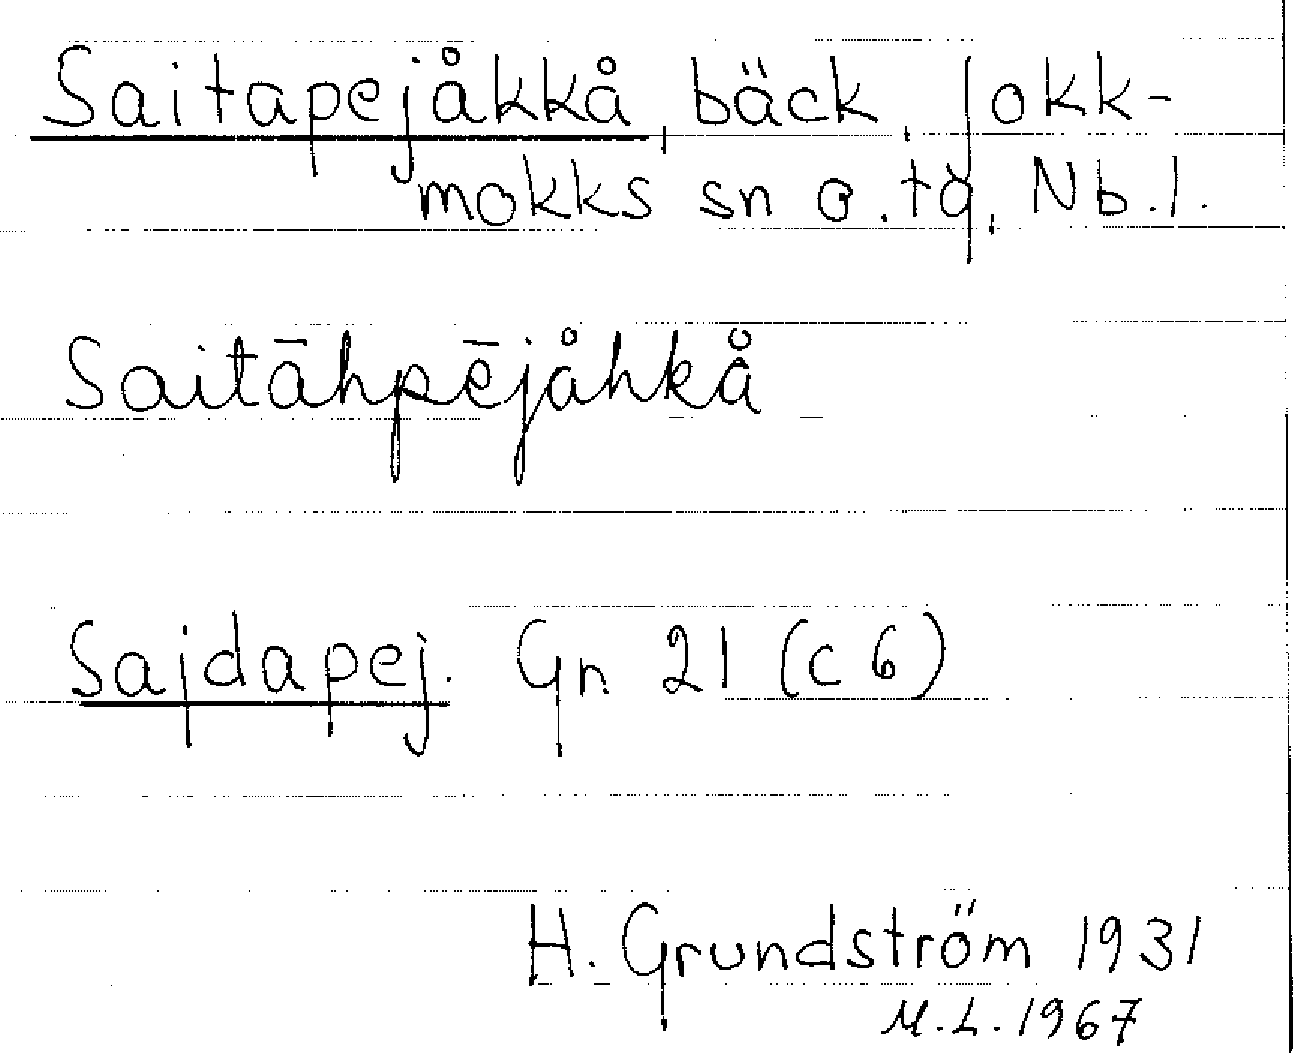 Saitapejåkkå, bäck, Jokk-
mokks sn o. tg, Nb.l.
Saitāhpējåhkå
Sajdapej. Gn 21 (c 6)
H. Grundström 1931
M.L. 1967